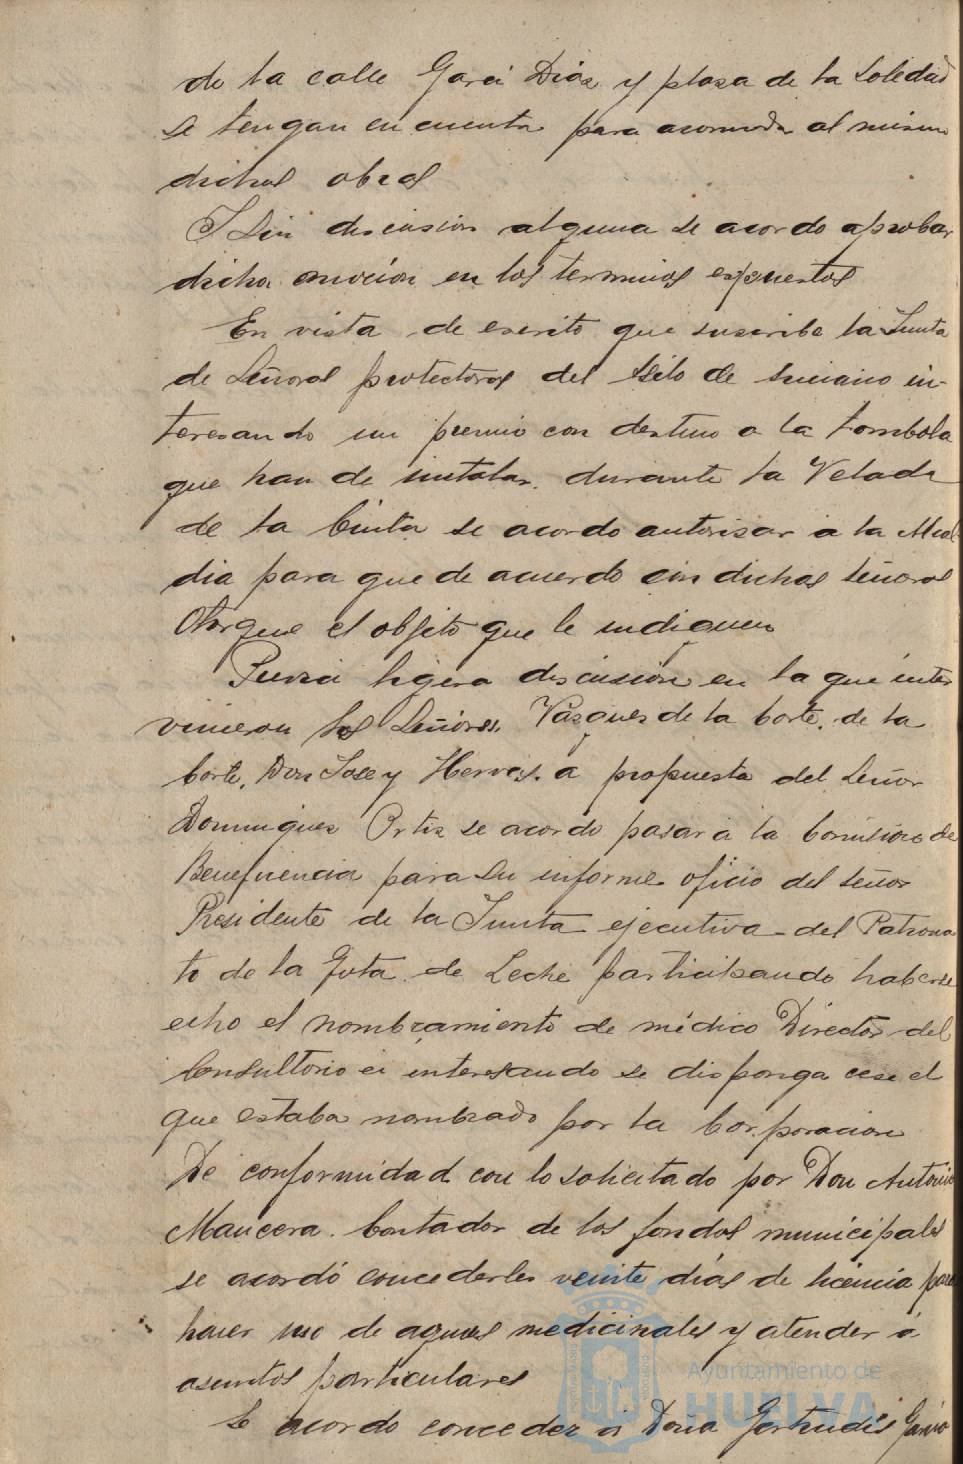 de la calle Garci Diaz y plaza de la Soledad
se tengan en cuenta para acomodar al mismo
dichas obras
Y sin discusion alguna se acordo aprobar
dicha mocion en los terminos espuestos
En vista de escrito que suscribe la Junta
de Señoras protectoras del Asilo de in-
teresando un premio con destino a la tombola
que han de instalar durante la Velada
de la Cinta se acordo autorizar a la Alcal-
dia para que de acuerdo con dichas señoras
otorgue el objeto que le indiquen
Previa ligera discusion en la que inter
vinieron los Señores Vazquez de la Corte, de la
Corte, Don Jose y Hervas. a propuesta del Señor
Dominguez Ortiz se acordo pasar a la Comision de
Beneficencia para su informe oficio del señor
Presidente de la Junta ejecutiva del Patrona
to de la Gota de Leche participando haberse
echo el nombramiento de médico Director del
Consultorio é interesando se disponga cese el
que estaba nombrado por la Corporacion
De conformidad con lo solicitado por Don Antonio
Mancera. Contador de los fondos municipales
se acordó concederles veinte días de licencia para
hacer uso de aguas medicinales y atender a
asuntos particulares
Se acordo conceder a Doña Gertrudis Garcia
Ayuntamiento de
HUELVA